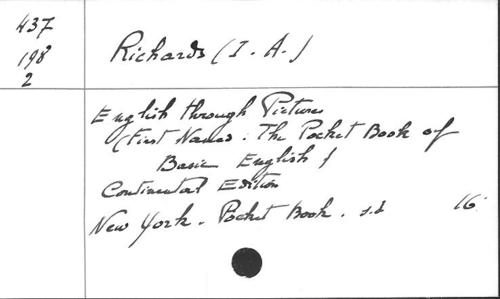 437
198
2
Richards (I. A.)
English through Pictures
(First Names. The Pocket Book of
Basic English)
Continental Edition
New York. Pocket Book. s.d 16°